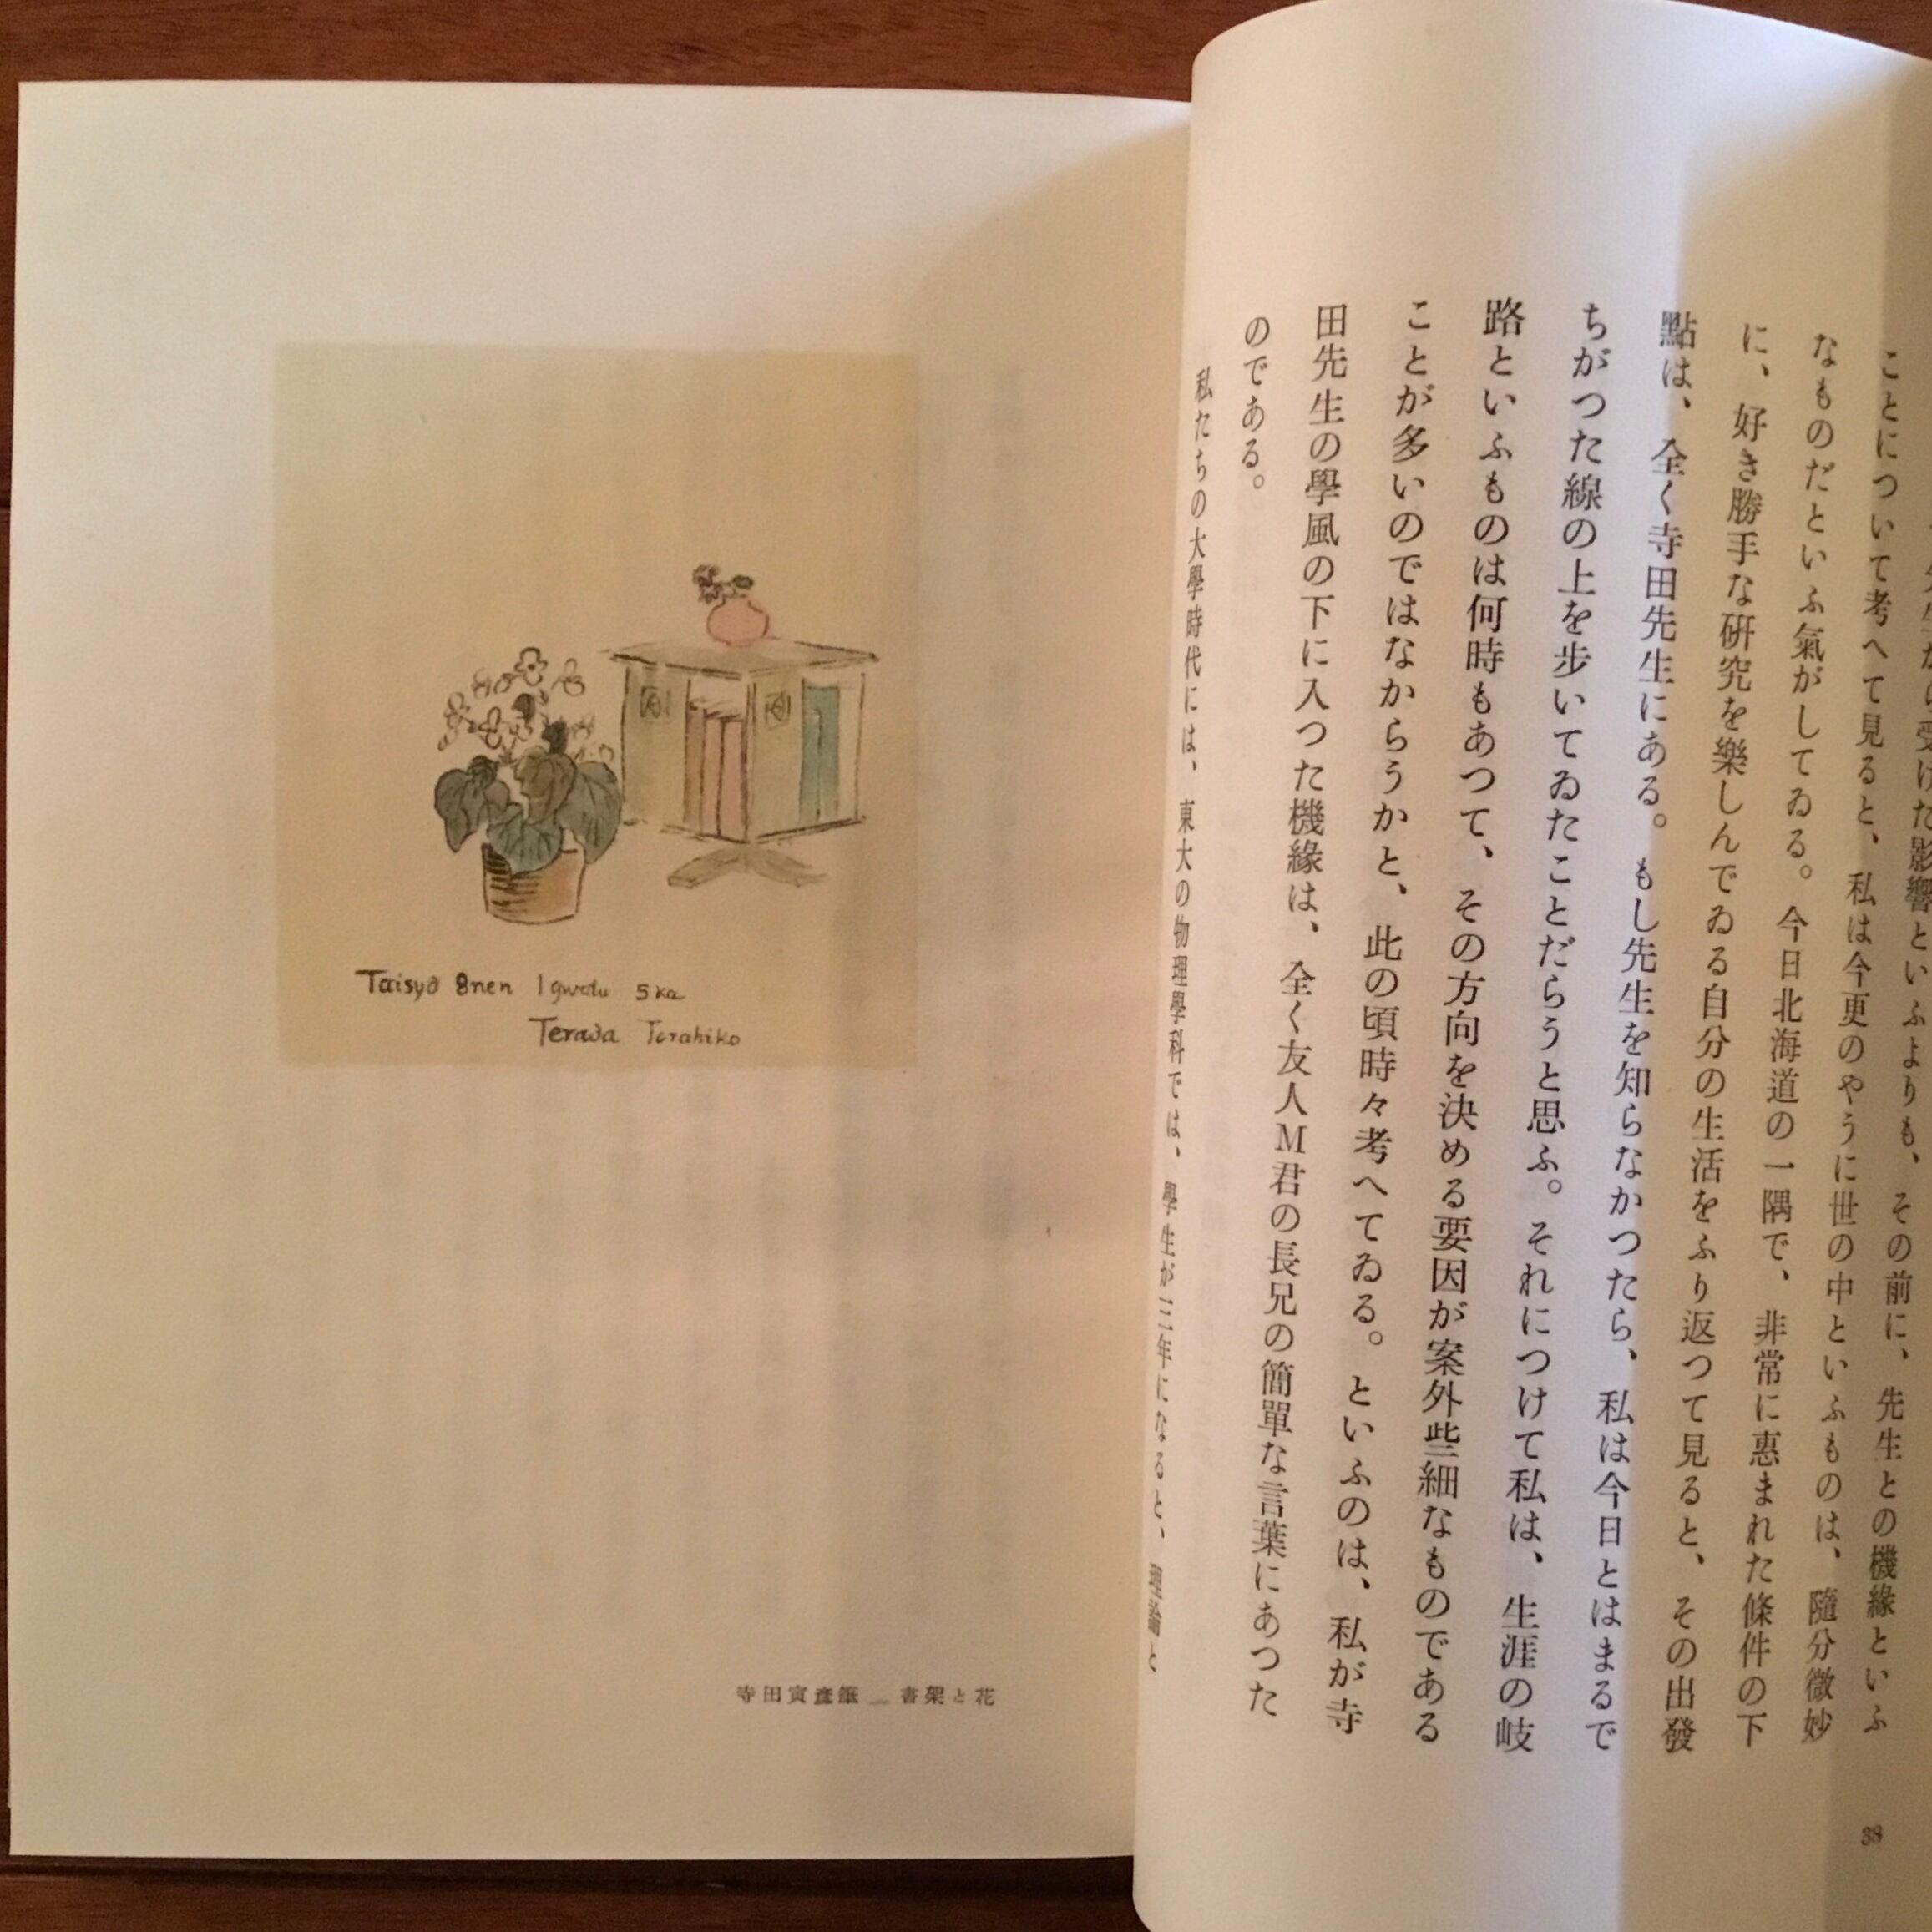 から受けた影響といふよりも、その前に、先生との機緣といふ
ことについて考へて見ると、私は今更のやうに世の中といふものは、隨分微妙
なものだといふ氣がしてゐる。今日北海道の一隅で、非常に惠まれた條件の下
に、好き勝手な研究を樂しんでゐる自分の生活をふり返つて見ると、その出發
點は、全く寺田先生にある。もし先生を知らなかつたら、私は今日とはまるで
ちがつた線の上を歩いてゐたことだらうと思ふ。それにつけて私は、生涯の岐
路といふものは何時もあつて、その方向を決める要因が案外些細なものである
ことが多いのではなからうかと、此の頃時々考へてゐる。といふのは、私が寺
田先生の學風の下に入つた機緣は、全く友人M君の長兄の簡單な言葉にあつた
のである。
私たちの大學時代には、東大の物理學科では、學生が三年になると、理論と
38
Taisyô 8nen 1gwatu 5ka
Terada Torahiko
寺田寅彥 書架と花